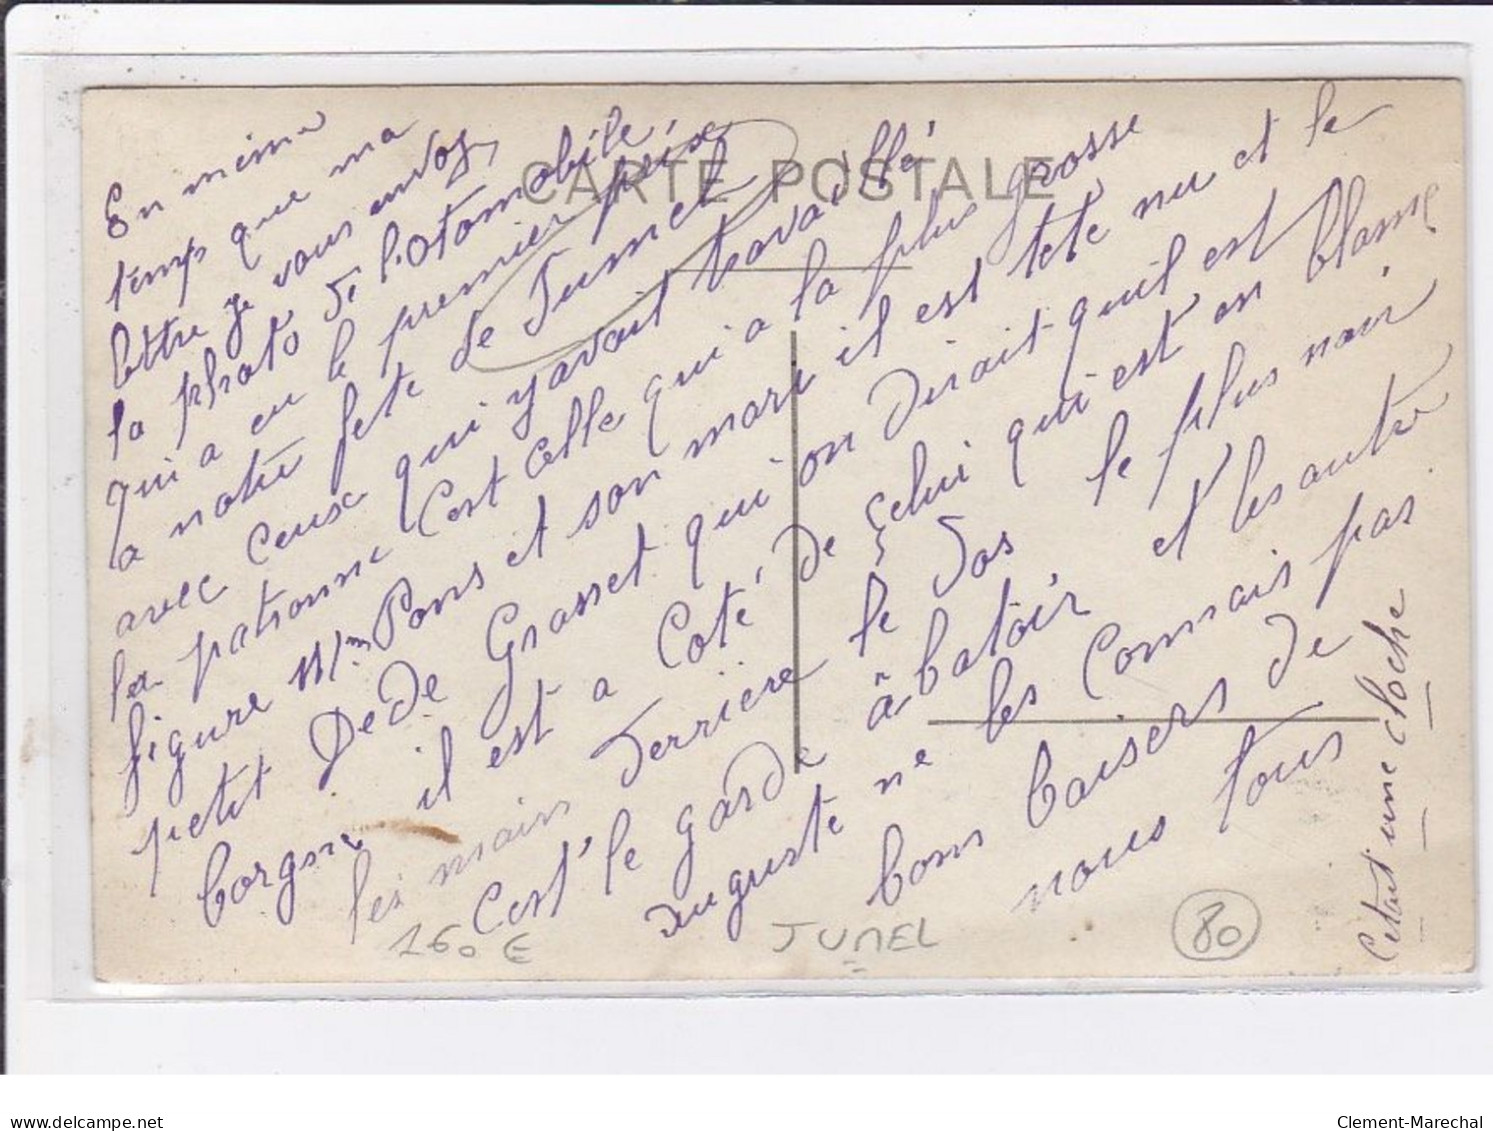 CARTE POSTALE
En meme
temps que ma
lettre je vous envoy
la photo de l'otomobile
qui a eu le premier prix
a notre fete de Jumel
avec ceux qui yavait travaillé
la patronne Cest celle qui a la plus grosse
figure Mme Pons et son mari il est tete nu et le
petit Dede Grasset qui on dirait quil est
borgne il est a Coté de celui qui est en blanc
les main derriere le dos le plus noir
Cest le garde abatoir et les autre
auguste ne les Connais pas
bons baisers de
nous tous
Cetait une cloche
160 €
JUMEL
80
www.delcampe.net
Clement-Marechal